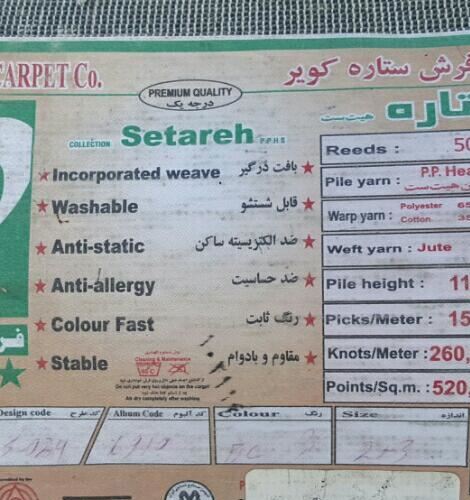 CARPET Co.
PREMIUM QUALITY
درجه یک
فرش ستاره کویر
COLLECTION Setareh P.P.H.S
هیت ست
Incorporated weave بافت درگیر
Washable قابل شستشو
Anti-static ضد الکتریسیته ساکن
Anti-allergy ضد حساسیت
Colour Fast رنگ ثابت
Stable مقاوم و بادوام
Cleaning & Maintenance
Do not put very hot objects on the carpet
Air dry completely after washing
Reeds : 50
Pile yarn : P.P. Hea
هیت ست
Warp yarn : Polyester 65
Cotton 35
Weft yarn : Jute
Pile height : 11
Picks/Meter : 15
Knots/Meter : 260,
Points/Sq.m. : 520,
Design code کد طرح
Album Code کد آلبوم
Colour رنگ
Size اندازه
2×3